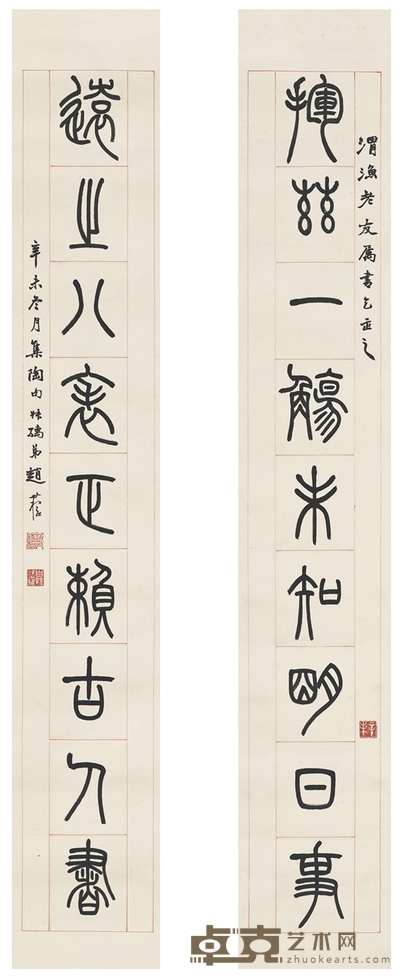 渭漁老友屬書乞正之
揮茲一觴未知明日事
遠之八表正賴古人書
辛未冬月集陶句弟趙
卓克艺术网
zhuokearts.com